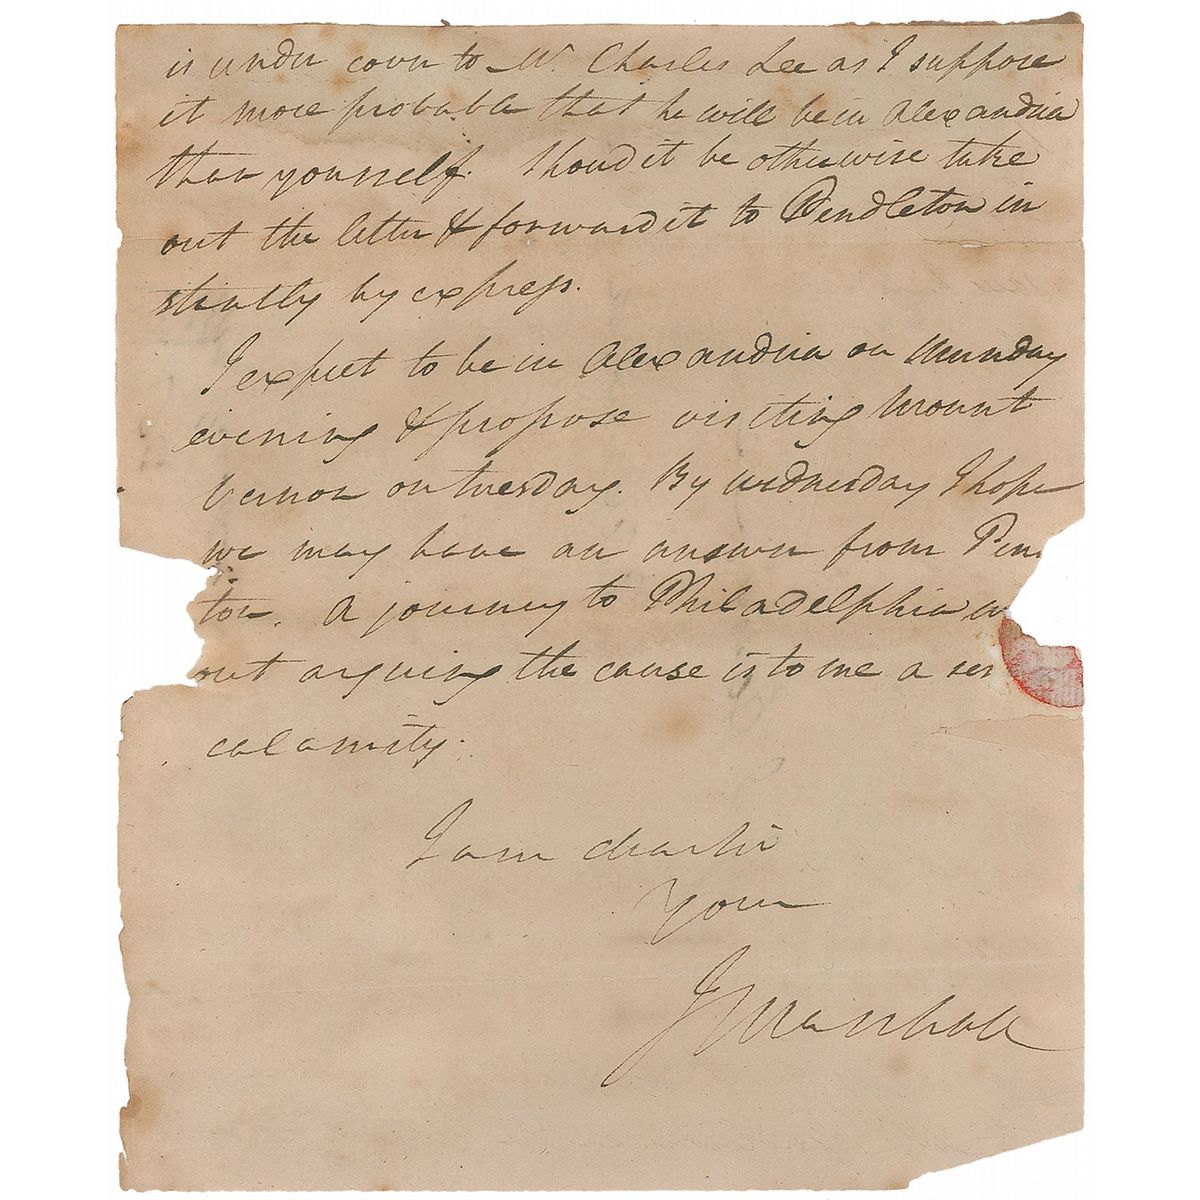 is under cover to Mr. Charles Lee as I suppose
it more probable that he will be in Alexandria
than yourself. Shoud it be otherwise take
out the letter & forward it to Pendleton in
stantly by express.
I expect to be in Alexandria on Munday
evening & propose visiting Mount
Vernon on tuesday. By wednesday I hope
we may have an answer from Pen
ton. A journey to Philadelphia w
out arguing the cause is to me a ser
calamity.
I am dear Sir
Your
J Marshall